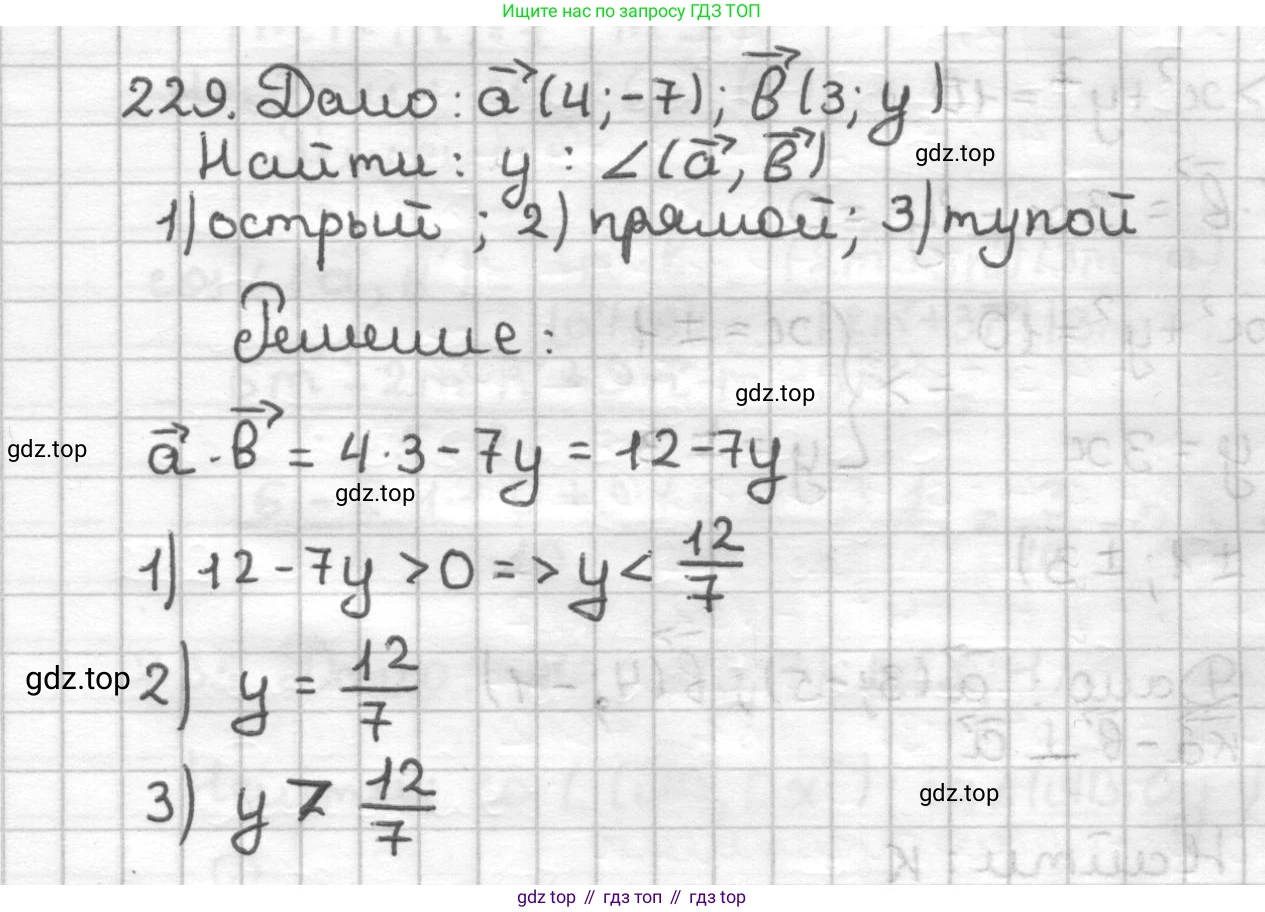 Ищите нас по запросу ГДЗ ТОП
229. Дано: a⃗ (4; -7); b⃗ (3; y)
gdz.top
Найти: y : ∠(a⃗, b⃗)
1) острый ; 2) прямой; 3) тупой
Решение:
gdz.top
gdz.top
a⃗ · b⃗ = 4·3 - 7y = 12 - 7y
gdz.top
1) 12 - 7y > 0 => y < 12/7
gdz.top
2) y = 12/7
3) y > 12/7
gdz.top
gdz top // гдз топ // gdz top